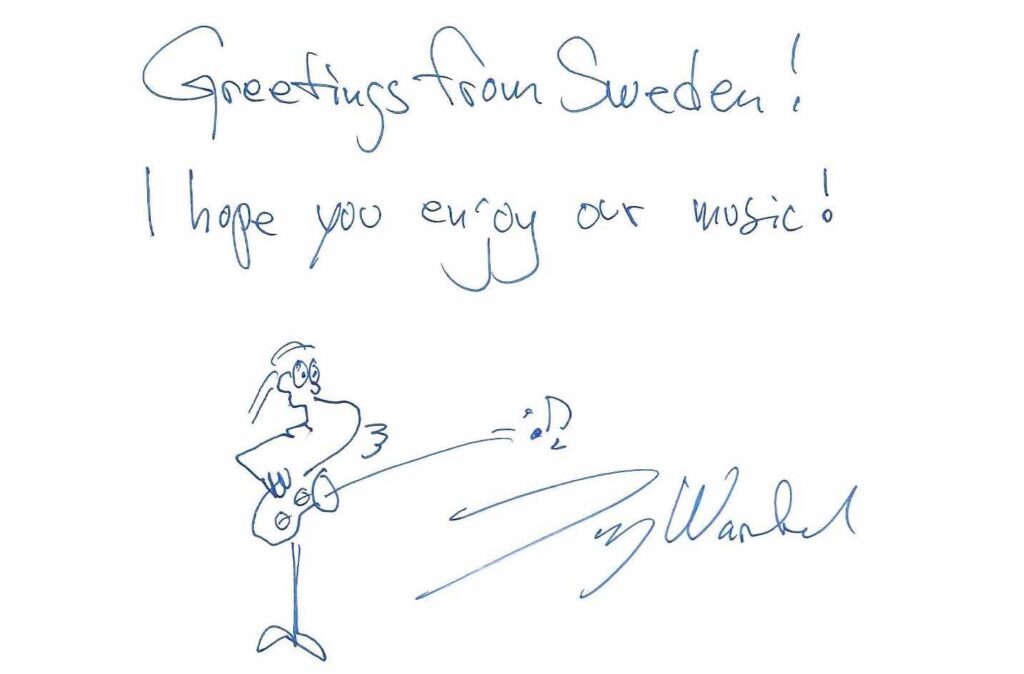 Greetings from Sweden!
I hope you enjoy our music!